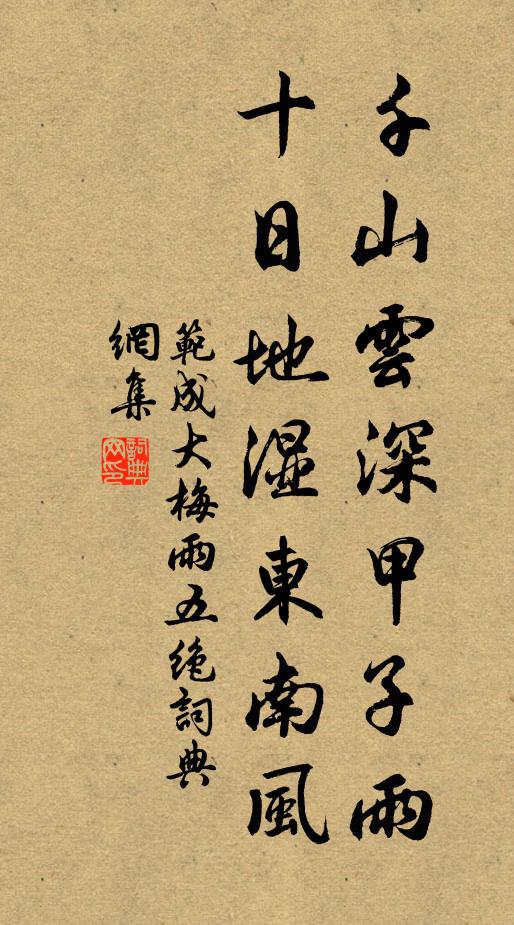 千山雲深甲子雨
十日地濕東南風
範成大梅雨五絶詞典
網集
詞典
网印